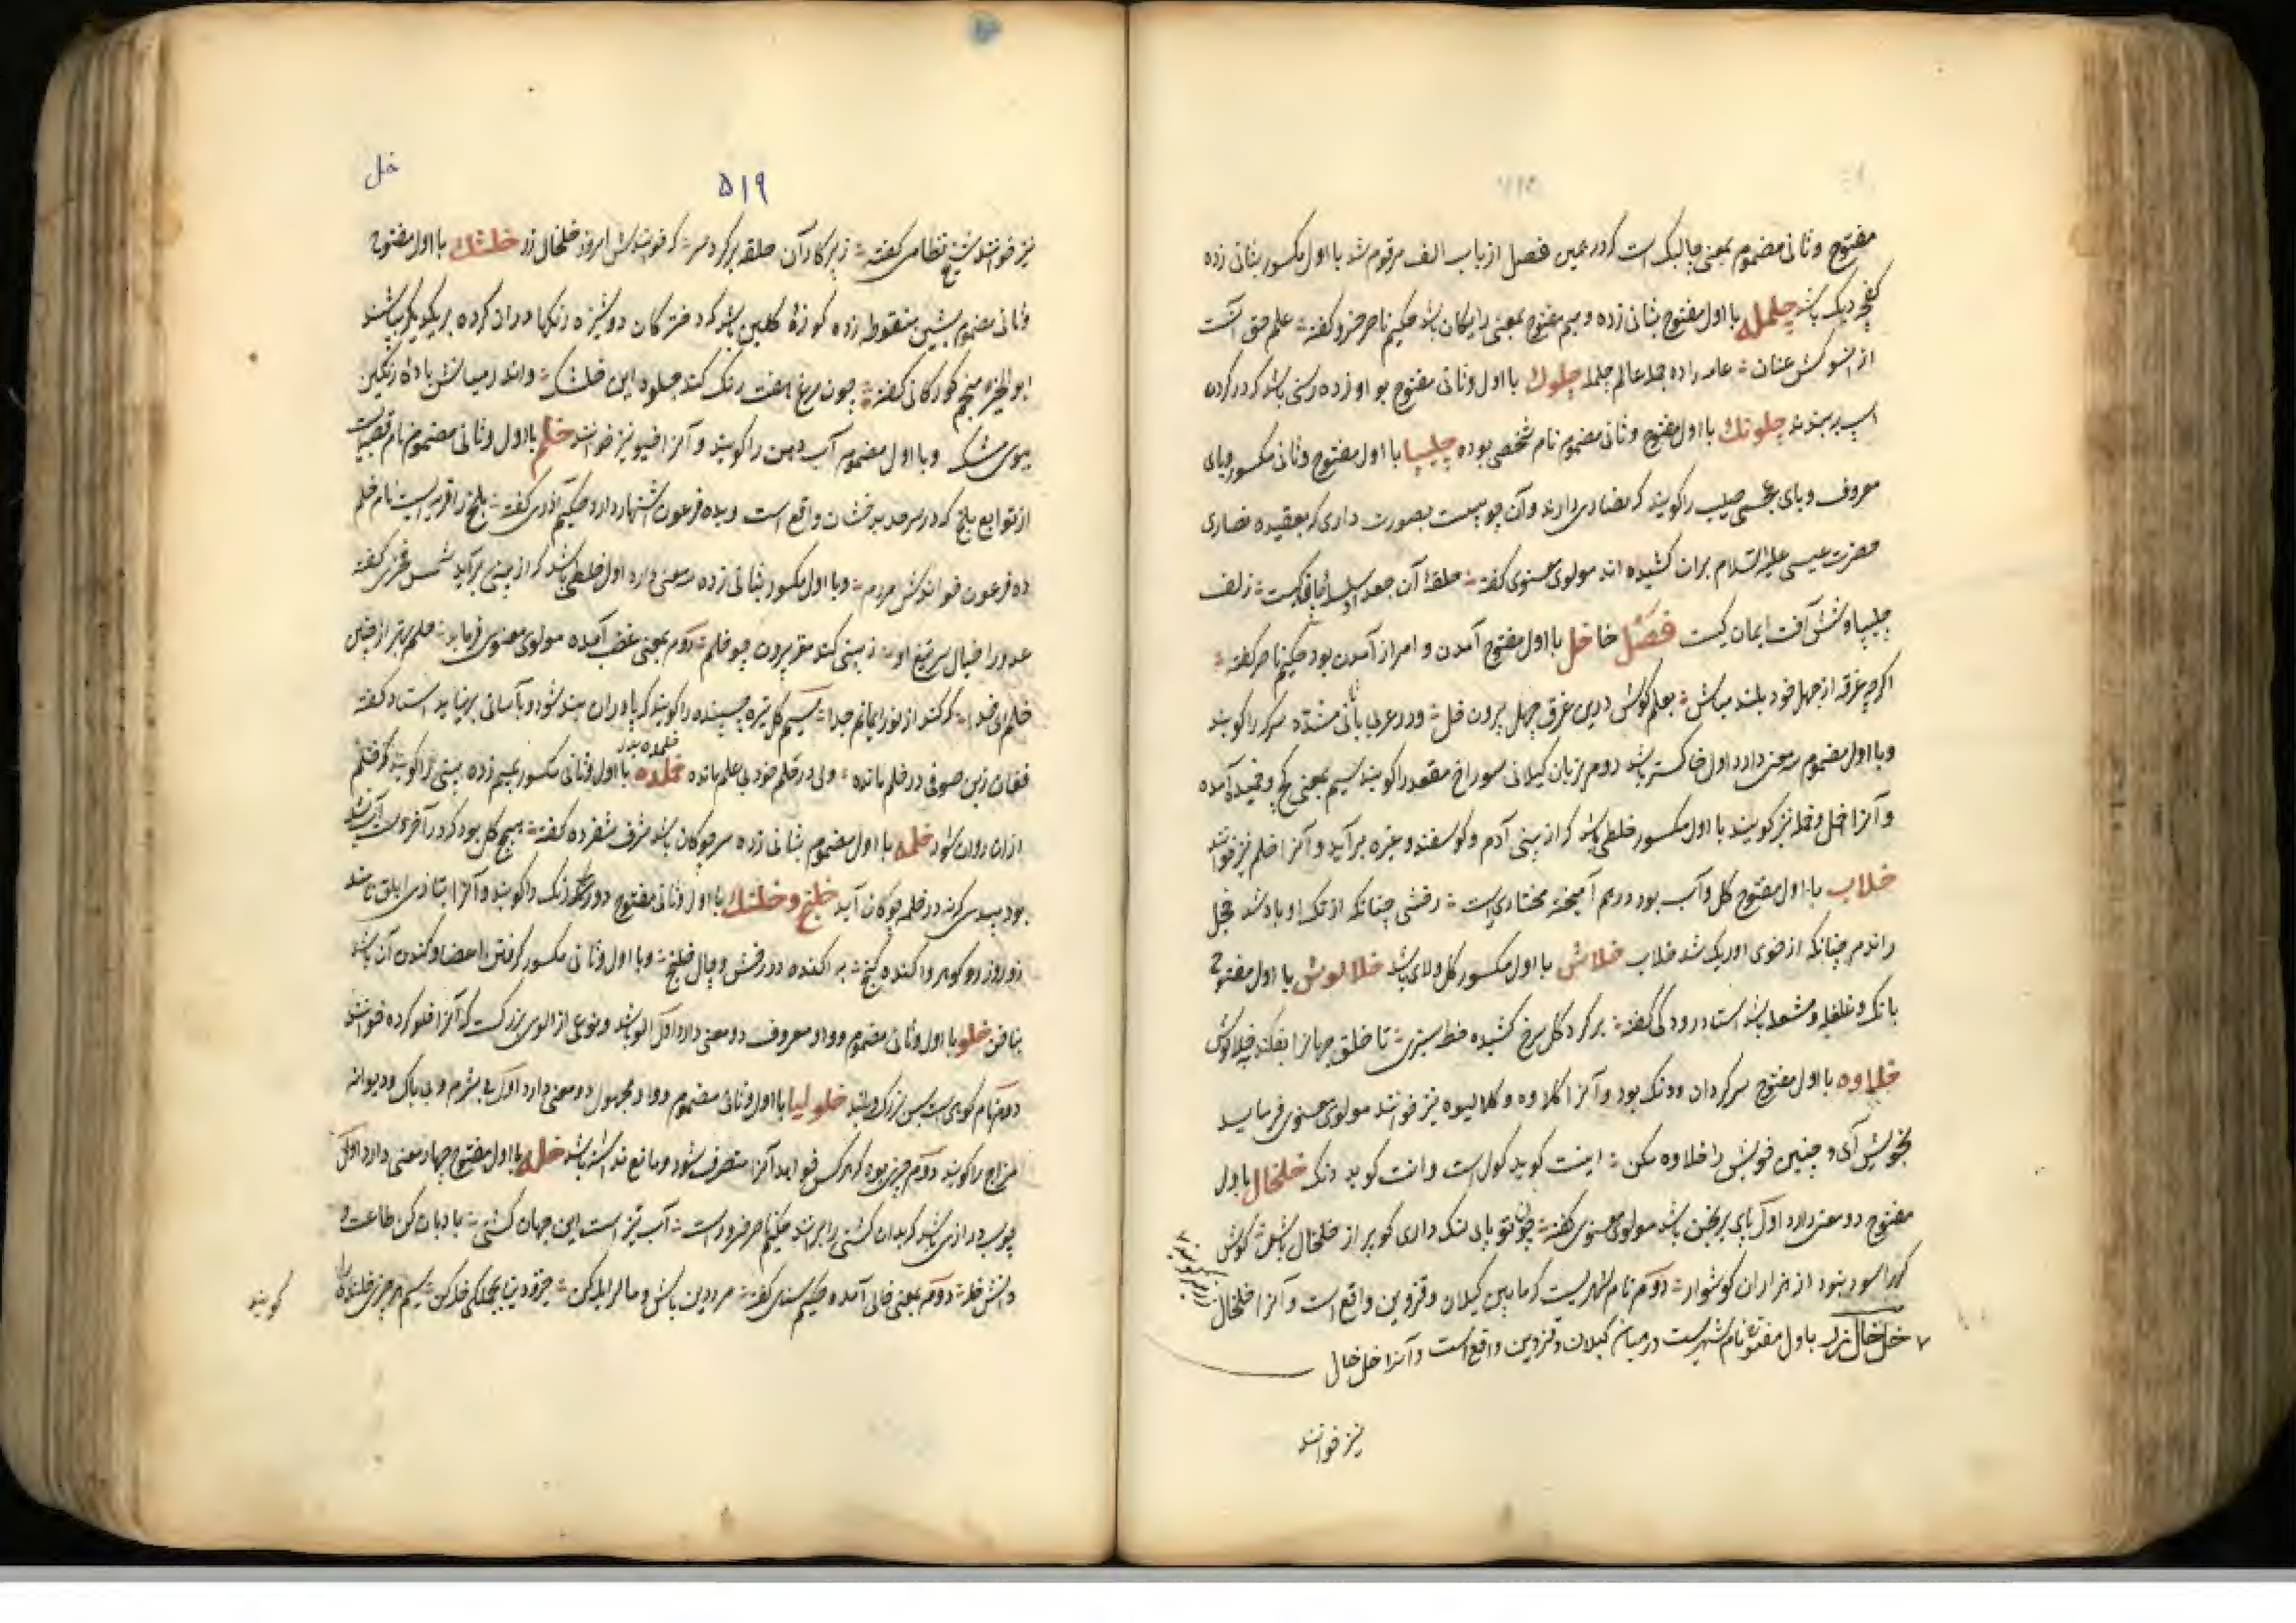 مفتوح و ثانی مضموم بمعنی چالیک است که در همین فصل از باب الف مرقوم شد با اول مکسور بثانی زده
کفچه دیک باشد چلمله با اول مفتوح بثانی زده و میم مفتوح بمعنی رایکان باشد حکیم ناصر خسرو گفته علم حق آنست
از انسو کش عنان عامه را ده جمله عالم چلمله چلوک با اول و ثانی مفتوح بواو زده رسنی باشد که در کردن
اسپ بر بندند چلونک با اول مفتوح و ثانی مضموم نام شخصی بوده چلیپا با اول مفتوح و ثانی مکسور و یای
معروف و بای عجمی صلیب را کویند که نصاری دارند و آن چوبیست بصورت داری که بعقیده نصاری
حضرت عیسی علیه السلام بران کشیده اند مولوی معنوی گفته حلقهٔ آن جعد او سلسلهٔ پای کیست زلف
چلیپاوشش آفت ایمان کیست فصل خا خل با اول مفتوح آمدن و امر از آمدن بود حکیم ناصر گفته
اگرچه غرقه از جهل خود بلند مباش بعلم کوش و ازین غرق جهل بیرون خل و در عربی با ثانی مشدد سرکه را کویند
و با اول مضموم سه معنی دارد اول خاکستر باشد دوم بزبان کیلانی سوراخ مقعد را کویند سیم بمعنی کج و خمیده آمده
و آنرا خل و خله نیز کویند با اول مکسور خلطی باشد که از بینی آدم و کوسفند و غیره برآید و آنرا خلم نیز خوانند
خلاب با اول مفتوح کل و آب بود درهم آمیخته مختاریست رخشی چنانکه از تک او باد شد خجل
راندم چنانکه از خوی او ریک شد خلاب خلاش با اول مکسور کل و لای باشد خلالوش با اول مفتوح
بانک و غلغله و مشغله باشد استاد رودکی گفته برکرد کل سرخ کشیده خط سبزی تا خلق جهانرا بفکند بخلالوش
خلاوه با اول مفتوح سرکردان و دنک بود و آنرا کلاوه و کالیوه نیز خوانند مولوی معنوی فرماید
بخویش آی و چنین خویش را خلاوه مکن اینت کوید کول است و انت کوید دنک خلخال باول
مفتوح دو معنی دارد اول پای برنجن باشد مولوی معنوی گفته چون تو پای لنک داری کو پر از خلخال باش کوش
کورا سود نبود از هزاران کوشوار دوم نام شهریست که مابین کیلان و قزوین واقع است و آنرا خلخال
خل خال باول مفتوح نام شهریست در میان کیلان و قزوین واقع است و آنرا خل خالی
نیز خوانند
خل
۵۱۹
نیز خوانند شیخ نظامی گفته ز پرکار آن حلقه بر کرد سر که خوانندش امروز خلخال زر خلشک با اول مفتوح
و ثانی مضموم بشین منقوطه زده کوزهٔ کلین باشد که دخترکان دوشیزه رنکها بران کرده بر یکدیگر پاشند
ابوالخیر منجم کورکانی گفته چون مرغ هفت رنک کند جلوه این خلشک و اندر میانش بادهٔ رنکین
ببوی مشک و با اول مضموم آب دهن را کویند و آنرا خیو نیز خوانند خلم با اول و ثانی مضموم نام قصبه ایست
از توابع بلخ که در سرحد بدخشان واقع است و بده فرعون اشتهار دارد حکیم آذری گفته بلخ را قریه ایست نام خلم
ده فرعون خوانندش مردم و با اول مکسور بثانی زده سه معنی دارد اول خلطی باشد که از بینی برآید شمس فخری گفته
عدو را خیال سر تیغ او ز بینی کند مغز بیرون چو خلم دوم بمعنی غضب آمده مولوی معنوی فرماید
خلم ای خدا که کند از نور ایمانم جدا سیم کل تیره چسپنده را کویند که پا در ان بند شود و بآسانی برنیاید استاد گفته
فغان زین صوفی در خلم مانده ولی در خلم خود بی علم مانده خلمده با اول و ثانی مکسور بمیم زده بینی را کویند که خلم
ازان روان شود خلمه با اول مضموم بثانی زده سر چوکان باشد شرف شفرده گفته
خلنج و خلنک با اول و ثانی مفتوح دو رنک را کویند و آنرا بتازی ابلق نامند
و با اول و ثانی مکسور گرفتن اعضا و کندن آن باشد
بناخن خلو با اول و ثانی مضموم و واو معروف دو معنی دارد اول آلو باشد و نوعی از آلوی بزرک است که آنرا خلو کرده خوانند
دوم نام کوهی است بس بزرک و بلند خلولیا با اول و ثانی مضموم و واو مجهول دو معنی دارد اول بی شرم و بی باک و دیوانه
مزاج را کویند دوم چیزی بود که هر کس خواهد آنرا متصرف شود و مانع نداشته باشد خله با اول مفتوح چهار معنی دارد اول
چوب درازی باشد که بدان کشتی را برانند حکیم ناصر خسرو راست آب تیز است این جهان کشتی بادبان کن طاعت و
دانش خله دوم بمعنی خالی آمده حکیم سنائی گفته مرد دین باش و مال را یله کن سیم هر چیز خلنده را
کویند